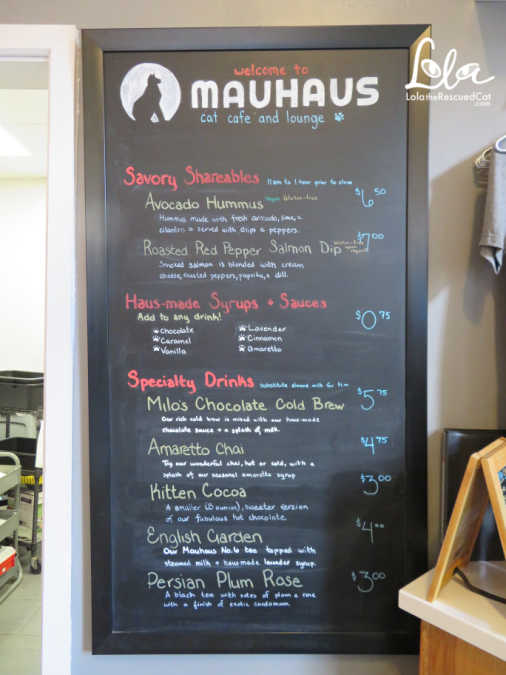 welcome to
MAUHAUS
cat cafe and lounge
Lola
LolatheRescuedCat
.com
Savory Shareables 11am to 1 hour prior to close
Avocado Hummus Vegan Gluten-free $6.50
Hummus made with fresh avocado, lime, +
cilantro + served with chips + peppers.
Roasted Red Pepper Salmon Dip $7.00
Smoked salmon is blended with cream
cheese, roasted peppers, paprika, + dill.
Haus-made Syrups + Sauces $0.75
Add to any drink!
Chocolate Lavender
Caramel Cinnamon
Vanilla Amaretto
Specialty Drinks substitute almond milk for
Milo's Chocolate Cold Brew $5.75
Our rich cold brew is mixed with our haus-made
chocolate sauce + a splash of milk.
Amaretto Chai $4.75
Try our wonderful chai, hot or cold, with a
splash of our seasonal amaretto syrup.
Kitten Cocoa $3.00
A smaller (8 ounces), sweeter version
of our fabulous hot chocolate.
English Garden $4.00
Our Mauhaus No. 6 tea topped with
steamed milk + haus made lavender syrup.
Persian Plum Rose $3.00
A black tea with notes of plum + rose
with a finish of exotic cardamom.